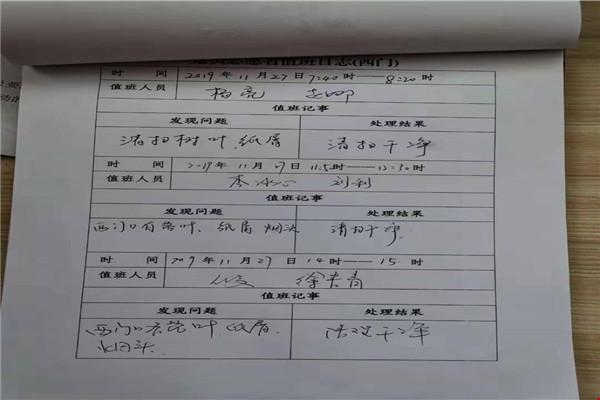 志愿者值班日志(西门)
时 间 2019年11月27日7:40时——8:20时
值班人员 杨亮
值班记事
发现问题 处理结果
清扫树叶,纸屑 清扫干净
时 间 2019年11月27日 11:50时——12:30时
值班人员 李冰心 刘利
值班记事
发现问题 处理结果
西门口有落叶、纸屑 烟头 清扫干净
时 间 2019年11月27日14时——15时
值班人员 徐青
值班记事
发现问题 处理结果
西门口有落叶,纸屑, 清理干净
烟头.